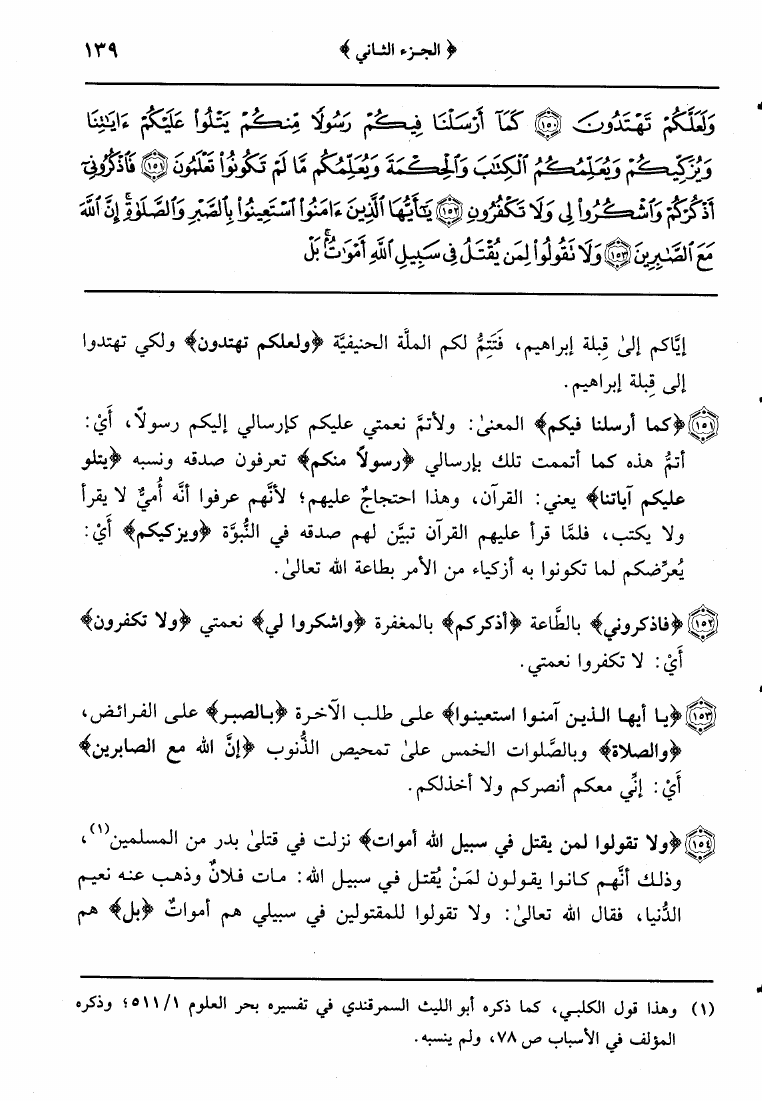 ﴿ الجزء الثاني ﴾ ١٣٩
وَلَعَلَّكُمْ تَهْتَدُونَ ١٥٠ كَمَآ أَرْسَلْنَا فِيكُمْ رَسُولًا مِّنكُمْ يَتْلُوا۟ عَلَيْكُمْ ءَايَٰتِنَا
وَيُزَكِّيكُمْ وَيُعَلِّمُكُمُ ٱلْكِتَٰبَ وَٱلْحِكْمَةَ وَيُعَلِّمُكُم مَّا لَمْ تَكُونُوا۟ تَعْلَمُونَ ١٥١ فَٱذْكُرُونِىٓ
أَذْكُرْكُمْ وَٱشْكُرُوا۟ لِى وَلَا تَكْفُرُونِ ١٥٢ يَٰٓأَيُّهَا ٱلَّذِينَ ءَامَنُوا۟ ٱسْتَعِينُوا۟ بِٱلصَّبْرِ وَٱلصَّلَوٰةِ ۚ إِنَّ ٱللَّهَ
مَعَ ٱلصَّٰبِرِينَ ١٥٣ وَلَا تَقُولُوا۟ لِمَن يُقْتَلُ فِى سَبِيلِ ٱللَّهِ أَمْوَٰتٌۢ ۚ بَلْ
إيَّاكم إلىٰ قِبلة إبراهيم، فَتَتِمُّ لكم الملَّة الحنيفيَّة ﴿ولعلكم تهتدون﴾ ولكي تهتدوا
إلى قِبلة إبراهيم.
١٥١ ﴿كما أرسلنا فيكم﴾ المعنىٰ: ولأتمَّ نعمتي عليكم كإرسالي إليكم رسولاً، أَيْ:
أتمُّ هذه كما أتممت تلك بإرسالي ﴿رسولاً منكم﴾ تعرفون صدقه ونسبه ﴿يتلو
عليكم آياتنا﴾ يعني: القرآن، وهذا احتجاجٌ عليهم؛ لأنَّهم عرفوا أنَّه أُميٌّ لا يقرأ
ولا يكتب، فلمَّا قرأ عليهم القرآن تبيَّن لهم صدقه في النُّبوَّة ﴿ويزكيكم﴾ أَيْ:
يُعرِّضكم لما تكونوا به أزكياء من الأمر بطاعة الله تعالىٰ.
١٥٢ ﴿فاذكروني﴾ بالطَّاعة ﴿أذكركم﴾ بالمغفرة ﴿واشكروا لي﴾ نعمتي ﴿ولا تكفرون﴾
أَيْ: لا تكفروا نعمتي.
١٥٣ ﴿يا أيها الذين آمنوا استعينوا﴾ على طلب الآخرة ﴿بالصبر﴾ على الفرائض،
﴿والصلاة﴾ وبالصَّلوات الخمس علىٰ تمحيص الذُّنوب ﴿إنَّ الله مع الصابرين﴾
أَيْ: إنِّي معكم أنصركم ولا أخذلكم.
١٥٤ ﴿ولا تقولوا لمن يقتل في سبيل الله أموات﴾ نزلت في قتلىٰ بدر من المسلمين(١)،
وذلك أنَّهم كانوا يقولون لمَنْ يُقتل في سبيل الله: مات فلانٌ وذهب عنه نعيم
الدُّنيا، فقال الله تعالىٰ: ولا تقولوا للمقتولين في سبيلي هم أمواتٌ ﴿بل﴾ هم
(١) وهذا قول الكلبي، كما ذكره أبو الليث السمرقندي في تفسيره بحر العلوم ٥١١/١؛ وذكره
المؤلف في الأسباب ص ٧٨، ولم ينسبه.